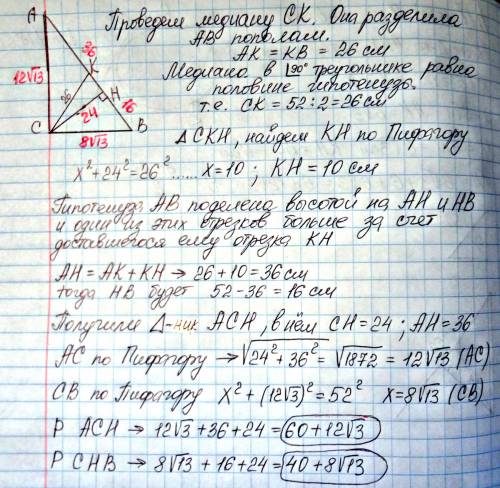 Проведем медиану СК. Она разделила
АВ пополам.
АК = КВ = 26 см
Медиана в 90° треугольнике равна
половине гипотенузы.
т.е. СК = 52:2 = 26 см
ΔСКН, найдем КН по Пифагору
x²+24²=26² ..... x=10 ; КН = 10 см
Гипотенуза АВ поделена высотой на АН и НВ
и один из этих отрезков больше за счет
доставшегося ему отрезка КН
АН = АК + КН → 26 + 10 = 36 см
тогда НВ будет 52-36 = 16 см
Получили Δ-ник АСН, в нём СН = 24 ; АН = 36
АС по Пифагору → √24²+36² = √1872 = 12√13 (АС)
СВ по Пифагору x² + (12√3)² = 52² x = 8√13 (СВ)
Р АСН → 12√3 + 36 + 24 = 60 + 12√3
Р СНВ → 8√13 + 16 + 24 = 40 + 8√13
А
36
К
12√13
26
Н
24
16
С
8√13
В